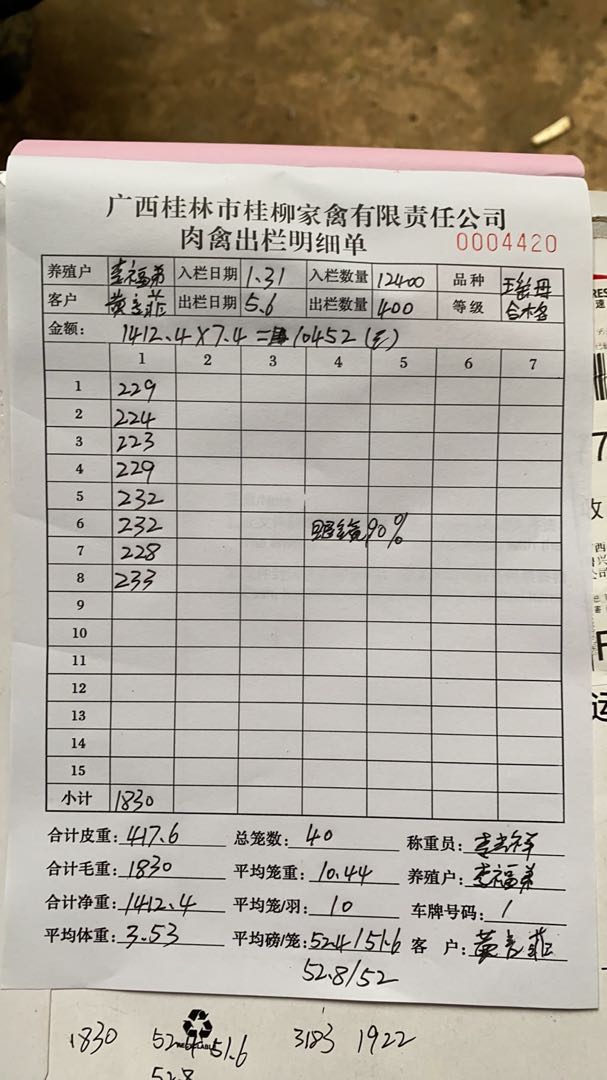 广西桂林市桂柳家禽有限责任公司
肉禽出栏明细单 0004420
养殖户 李福弟 入栏日期 1.31 入栏数量 12400 品种
客户 黄 菲 出栏日期 5.6 出栏数量 400 等级 合格
金额: 1412.4×7.4= 10452(元)
1 2 3 4 5 6 7
1 229
2 224
3 223
4 229
5 232
6 232 90%
7 228
8 233
9
10
11
12
13
14
15
小计 1830
合计皮重: 417.6 总笼数: 40 称重员: 李 祥
合计毛重: 1830 平均笼重: 10.44 养殖户: 李福弟
合计净重: 1412.4 平均笼/羽: 10 车牌号码: /
平均体重: 3.53 平均磅/笼: 52.4/51.6 客 户: 黄 菲
52.8/52
1830 52.4 51.6 3183 1922
52.8